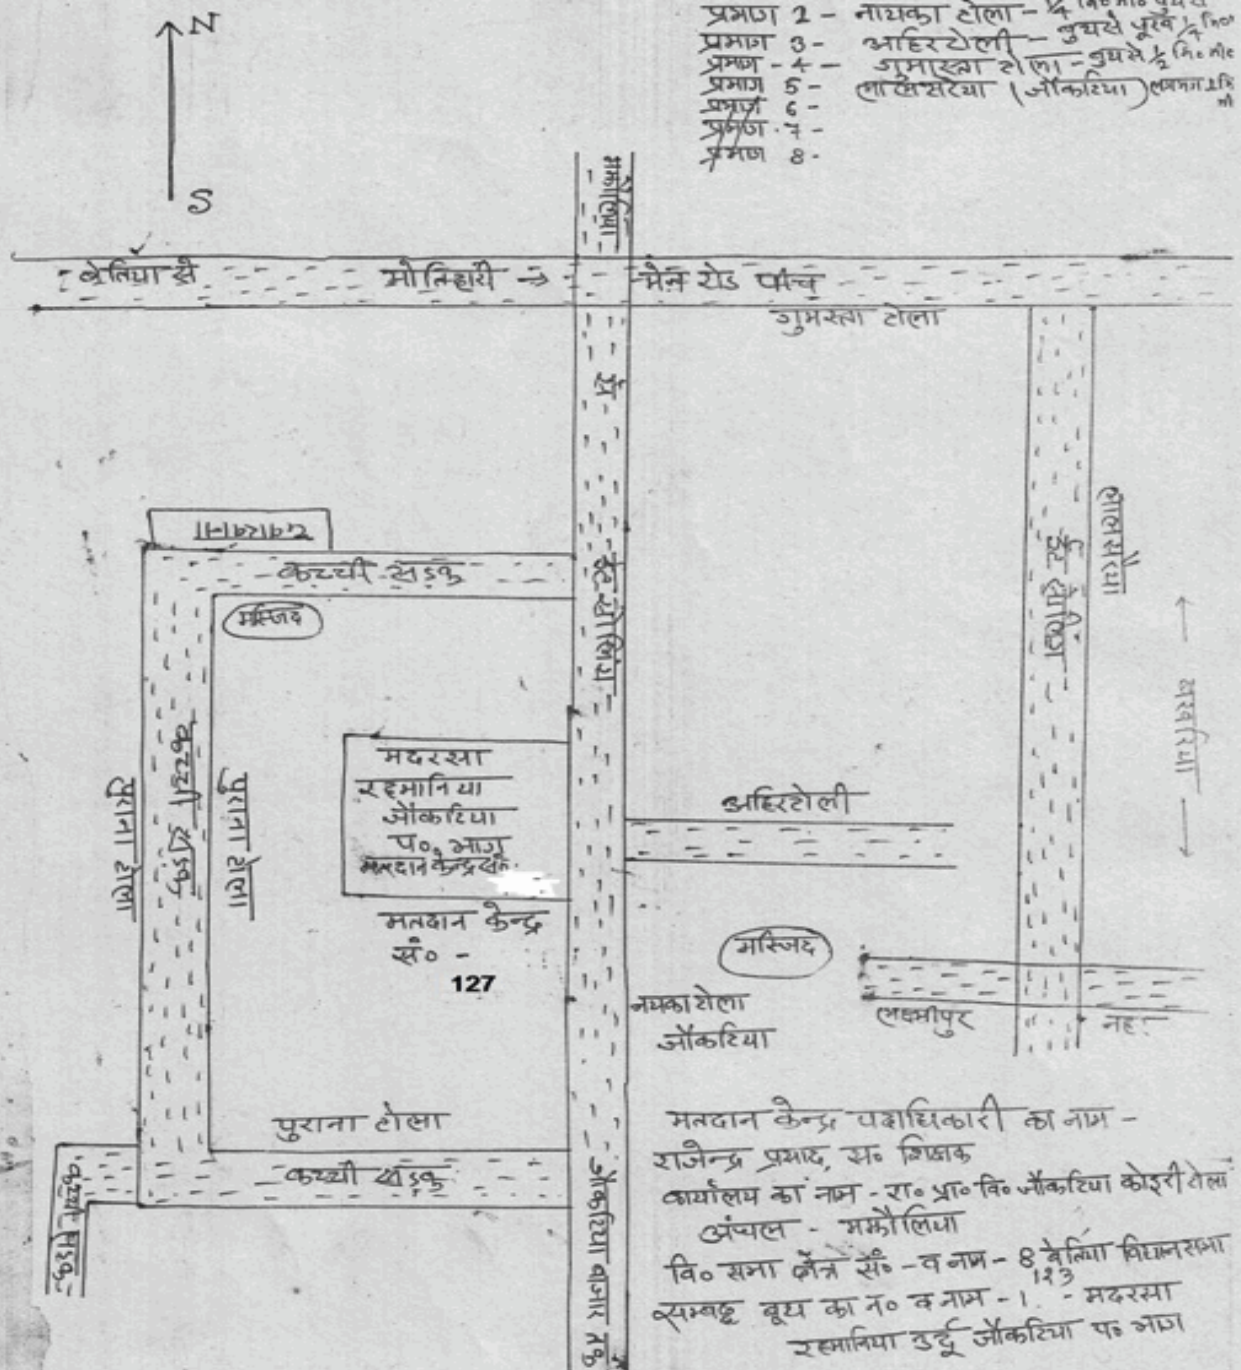 N
S
प्रभाग 2 - नायका टोला - 1/4 कि०मी०
प्रभाग 3 - अहिरटोली - बुथसे पूरब 1/4
प्रभाग - 4 - गुमास्ता टोला - बुथसे 1/2 कि० मी०
प्रभाग 5 - लालसरैया (जौकटिया) लगभग
प्रभाग 6 -
प्रभाग 7 -
प्रभाग 8 -
मझौलिया
बेतिया से मोतिहारी → मेन रोड पीच
गुमस्ता टोला
से
कच्ची सड़क
मस्जिद
ईट सोलिंग
ईट सोलिंग
लालसरैया
← बखरिया →
कच्ची सड़क
पुराना टोला
पुराना टोला
मदरसा
रहमानिया
जौकटिया
प० भाग
मतदान केन्द्र सं०
मतदान केन्द्र
सं० -
127
अहिरटोली
मस्जिद
नयका टोला
जौकटिया
लक्ष्मीपुर
नहर
पुराना टोला
कच्ची सड़क
कच्ची सड़क
जौकटिया बाजार तक
मतदान केन्द्र पदाधिकारी का नाम -
राजेन्द्र प्रसाद, स० शिक्षक
कार्यालय का नाम - रा० प्रा० वि० जौकटिया कोइरी टोला
अंचल - मझौलिया
वि० सभा क्षेत्र सं० - व नाम - 8 बेतिया विधानसभा
सम्बद्ध बूथ का न० व नाम - 123 - मदरसा
रहमानिया उर्दू जौकटिया प० भाग